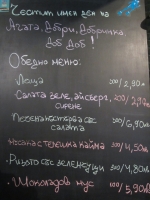 Честит имен ден на
Агата, Добри, Добринка,
Доб Доб !
Обедно меню:
Леща 300/2,90лв
Салата зеле, айсберг, 300/
сирене
с
салата 300/6,90лв
с телешка кайма 300/4,50лв
- Ризото със зеленчуци 300/4,80лв
- Шоколадов мус 100/5,90лв